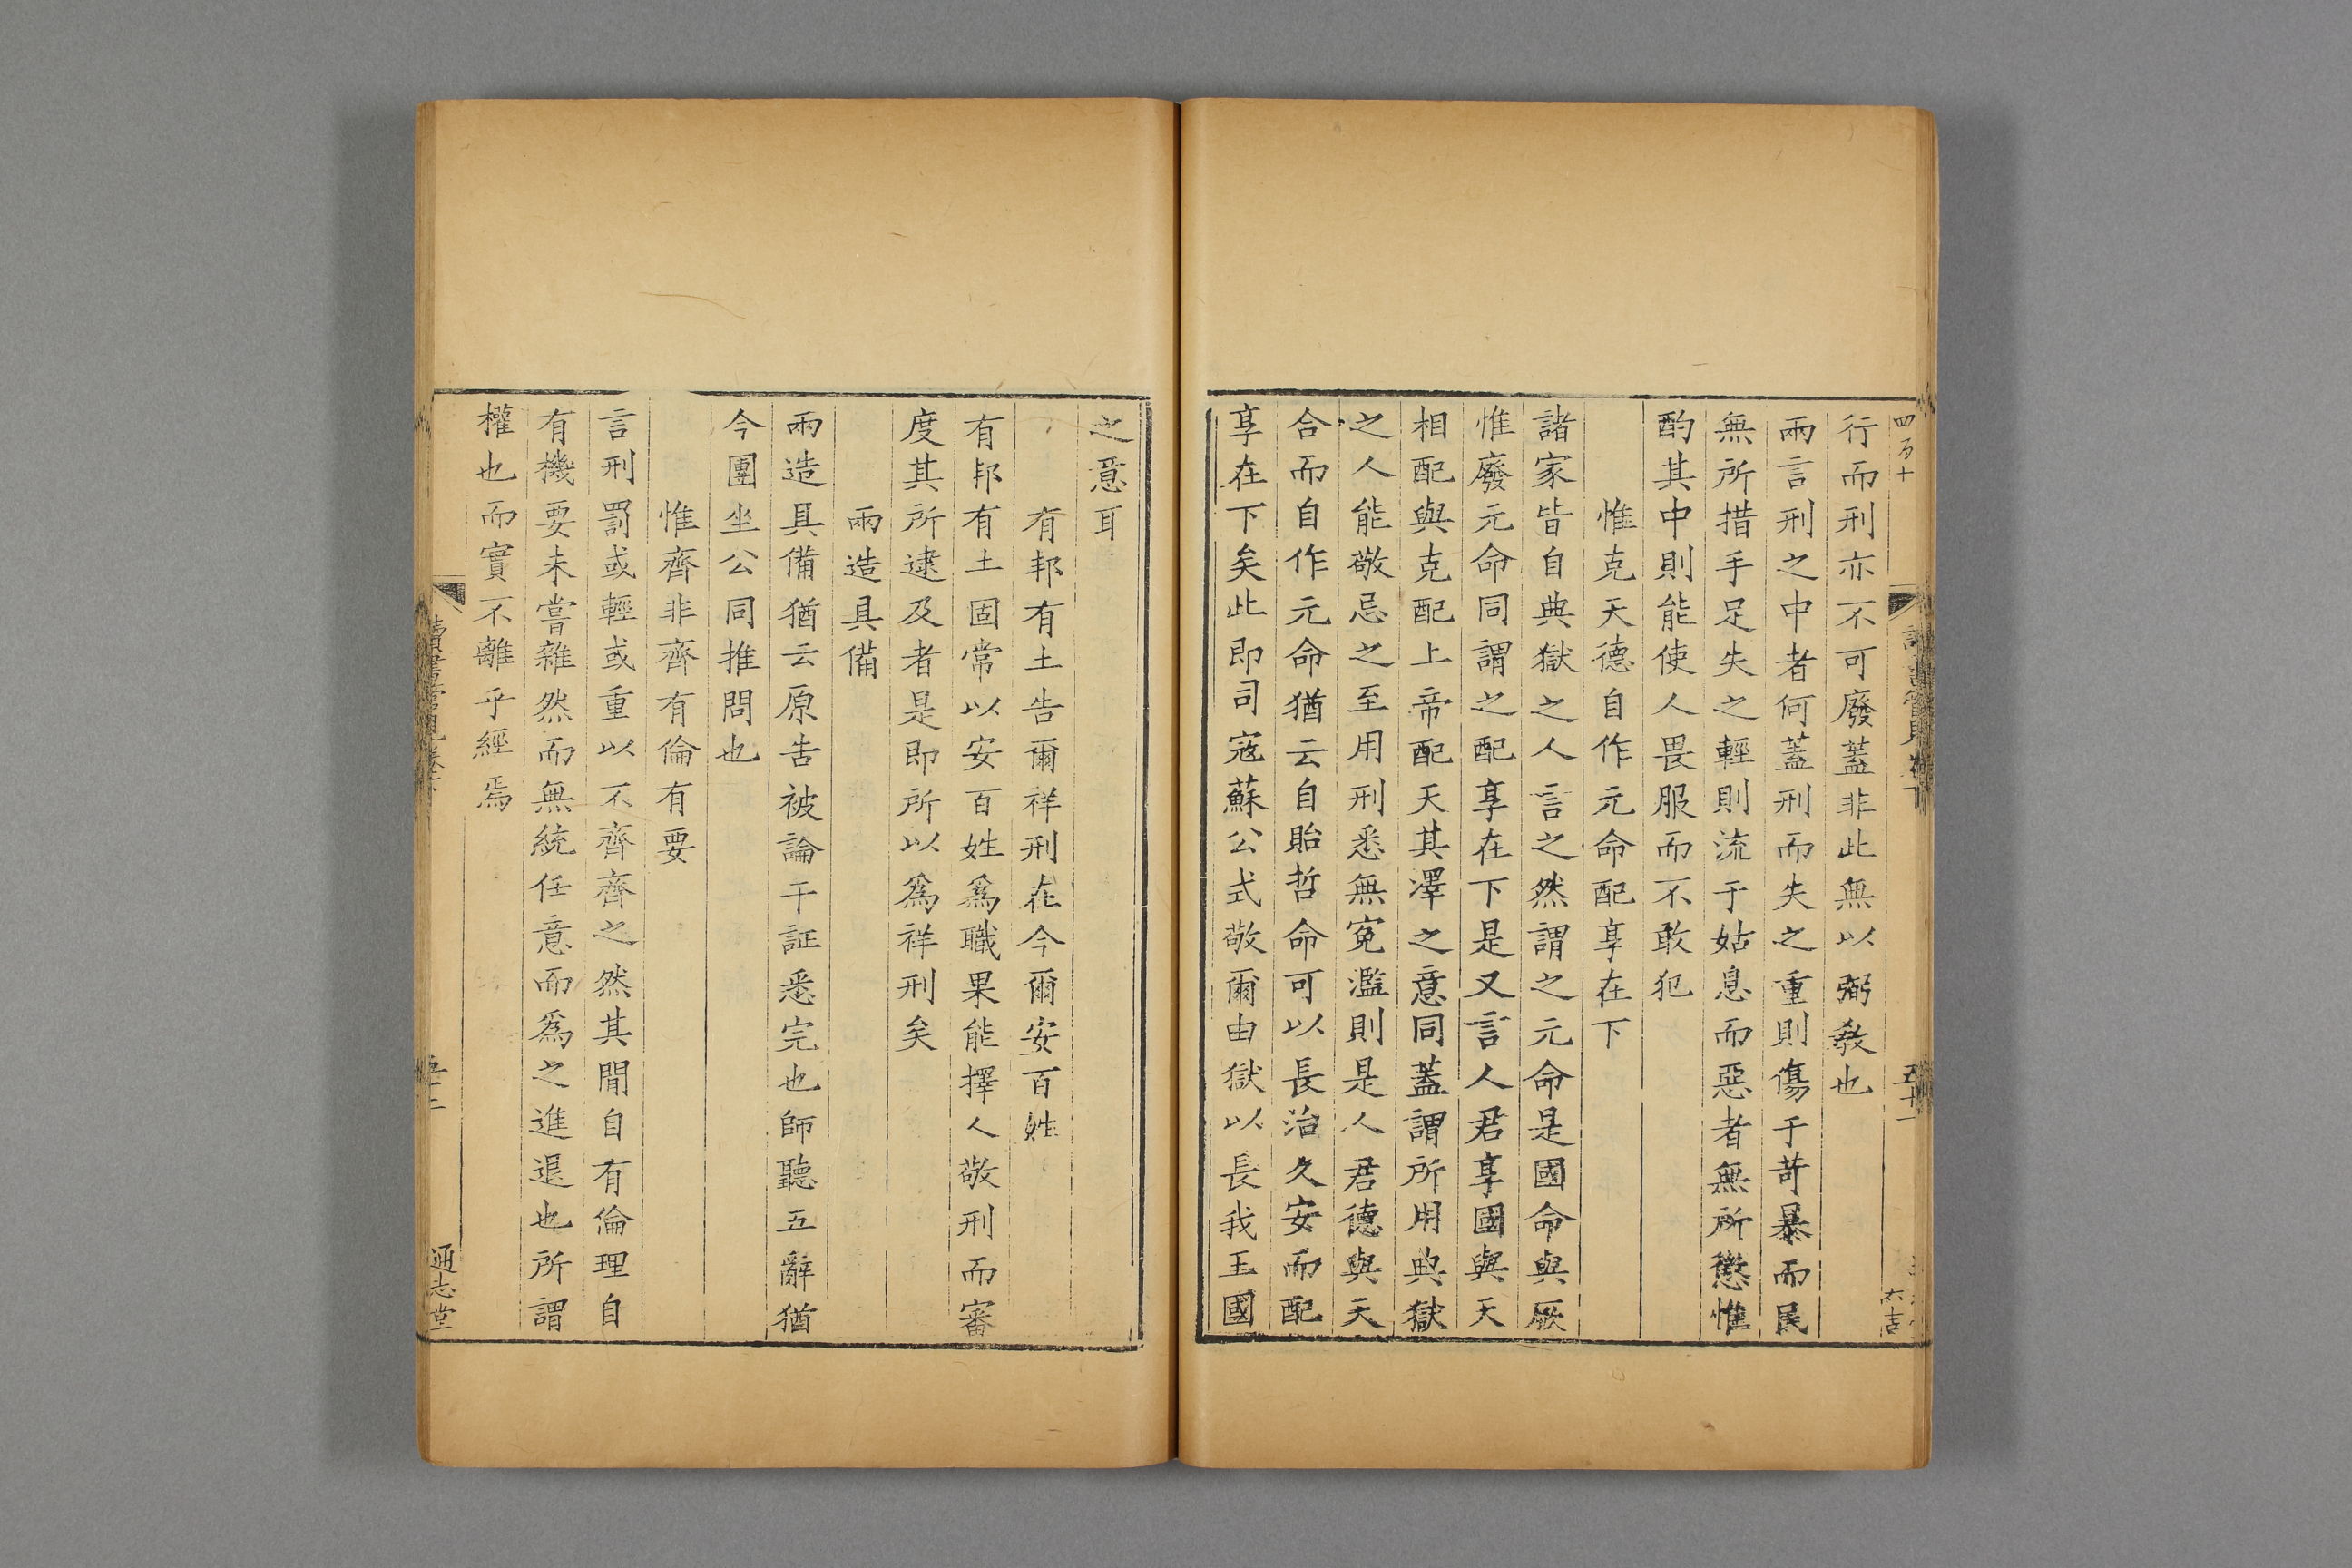 四百十
行而刑亦不可廢蓋非此無以弼敎也
兩言刑之中者何蓋刑而失之重則傷于苛暴而民
無所措手足失之輕則流于姑息而惡者無所懲惟
酌其中則能使人畏服而不敢犯
惟克天德自作元命配享在下
諸家皆自典獄之人言之然謂之元命是國命與厥
惟廢元命同謂之配享在下是又言人君享國與天
相配與克配上帝配天其澤之意同蓋謂所用典獄
之人能敬忌之至用刑悉無冤濫則是人君德與天
合而自作元命猶云自貽哲命可以長治久安而配
享在下矣此即司寇蘇公式敬爾由獄以長我王國
之意耳
有邦有土告爾祥刑在今爾安百姓
有邦有土固常以安百姓爲職果能擇人敬刑而審
度其所逮及者是即所以爲祥刑矣
兩造具備
兩造具備猶云原告被論干証悉完也師聽五辭猶
今團坐公同推問也
惟齊非齊有倫有要
言刑罰或輕或重以不齊齊之然其閒自有倫理自
有機要未嘗雜然而無統任意而爲之進退也所謂
權也而實不離乎經焉
讀書管見卷下
通志堂